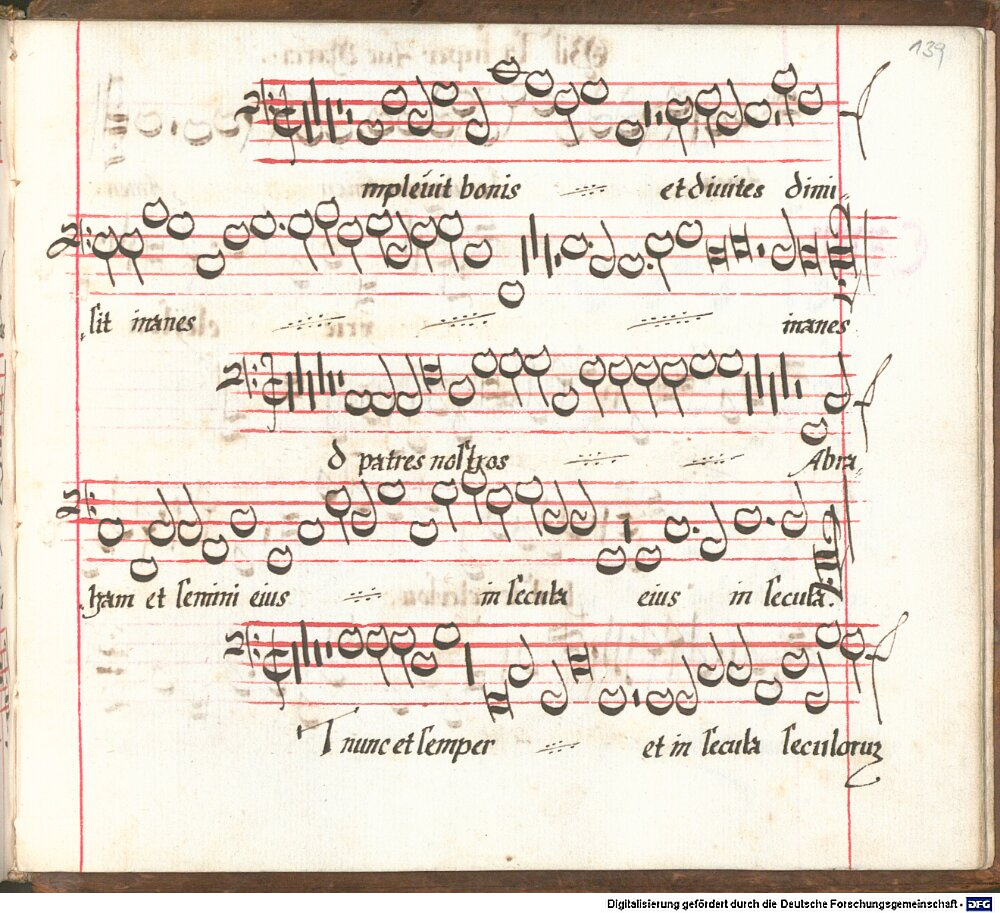 139
mpleuit bonis et diuites dimi
sit inanes inanes
d patres nostros Abra
ham et semini eius in secula eius in secula.
T nunc et semper et in secula seculorum
Digitalisierung gefördert durch die Deutsche Forschungsgemeinschaft - DFG